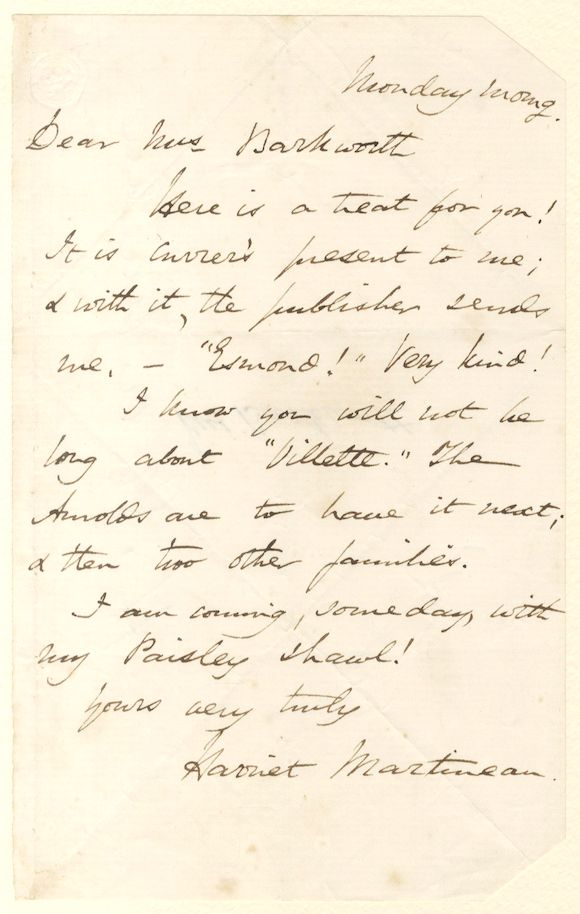 Monday morng.
Dear Mrs Barkworth
Here is a treat for you!
It is Currer's present to me;
& with it, the publisher sends
me, — "Esmond!" Very kind!
I know you will not be
long about "Villette." The
Arnolds are to have it next;
& then two other families.
I am coming, someday, with
my Paisley shawl!
Yours very truly
Harriet Martineau.